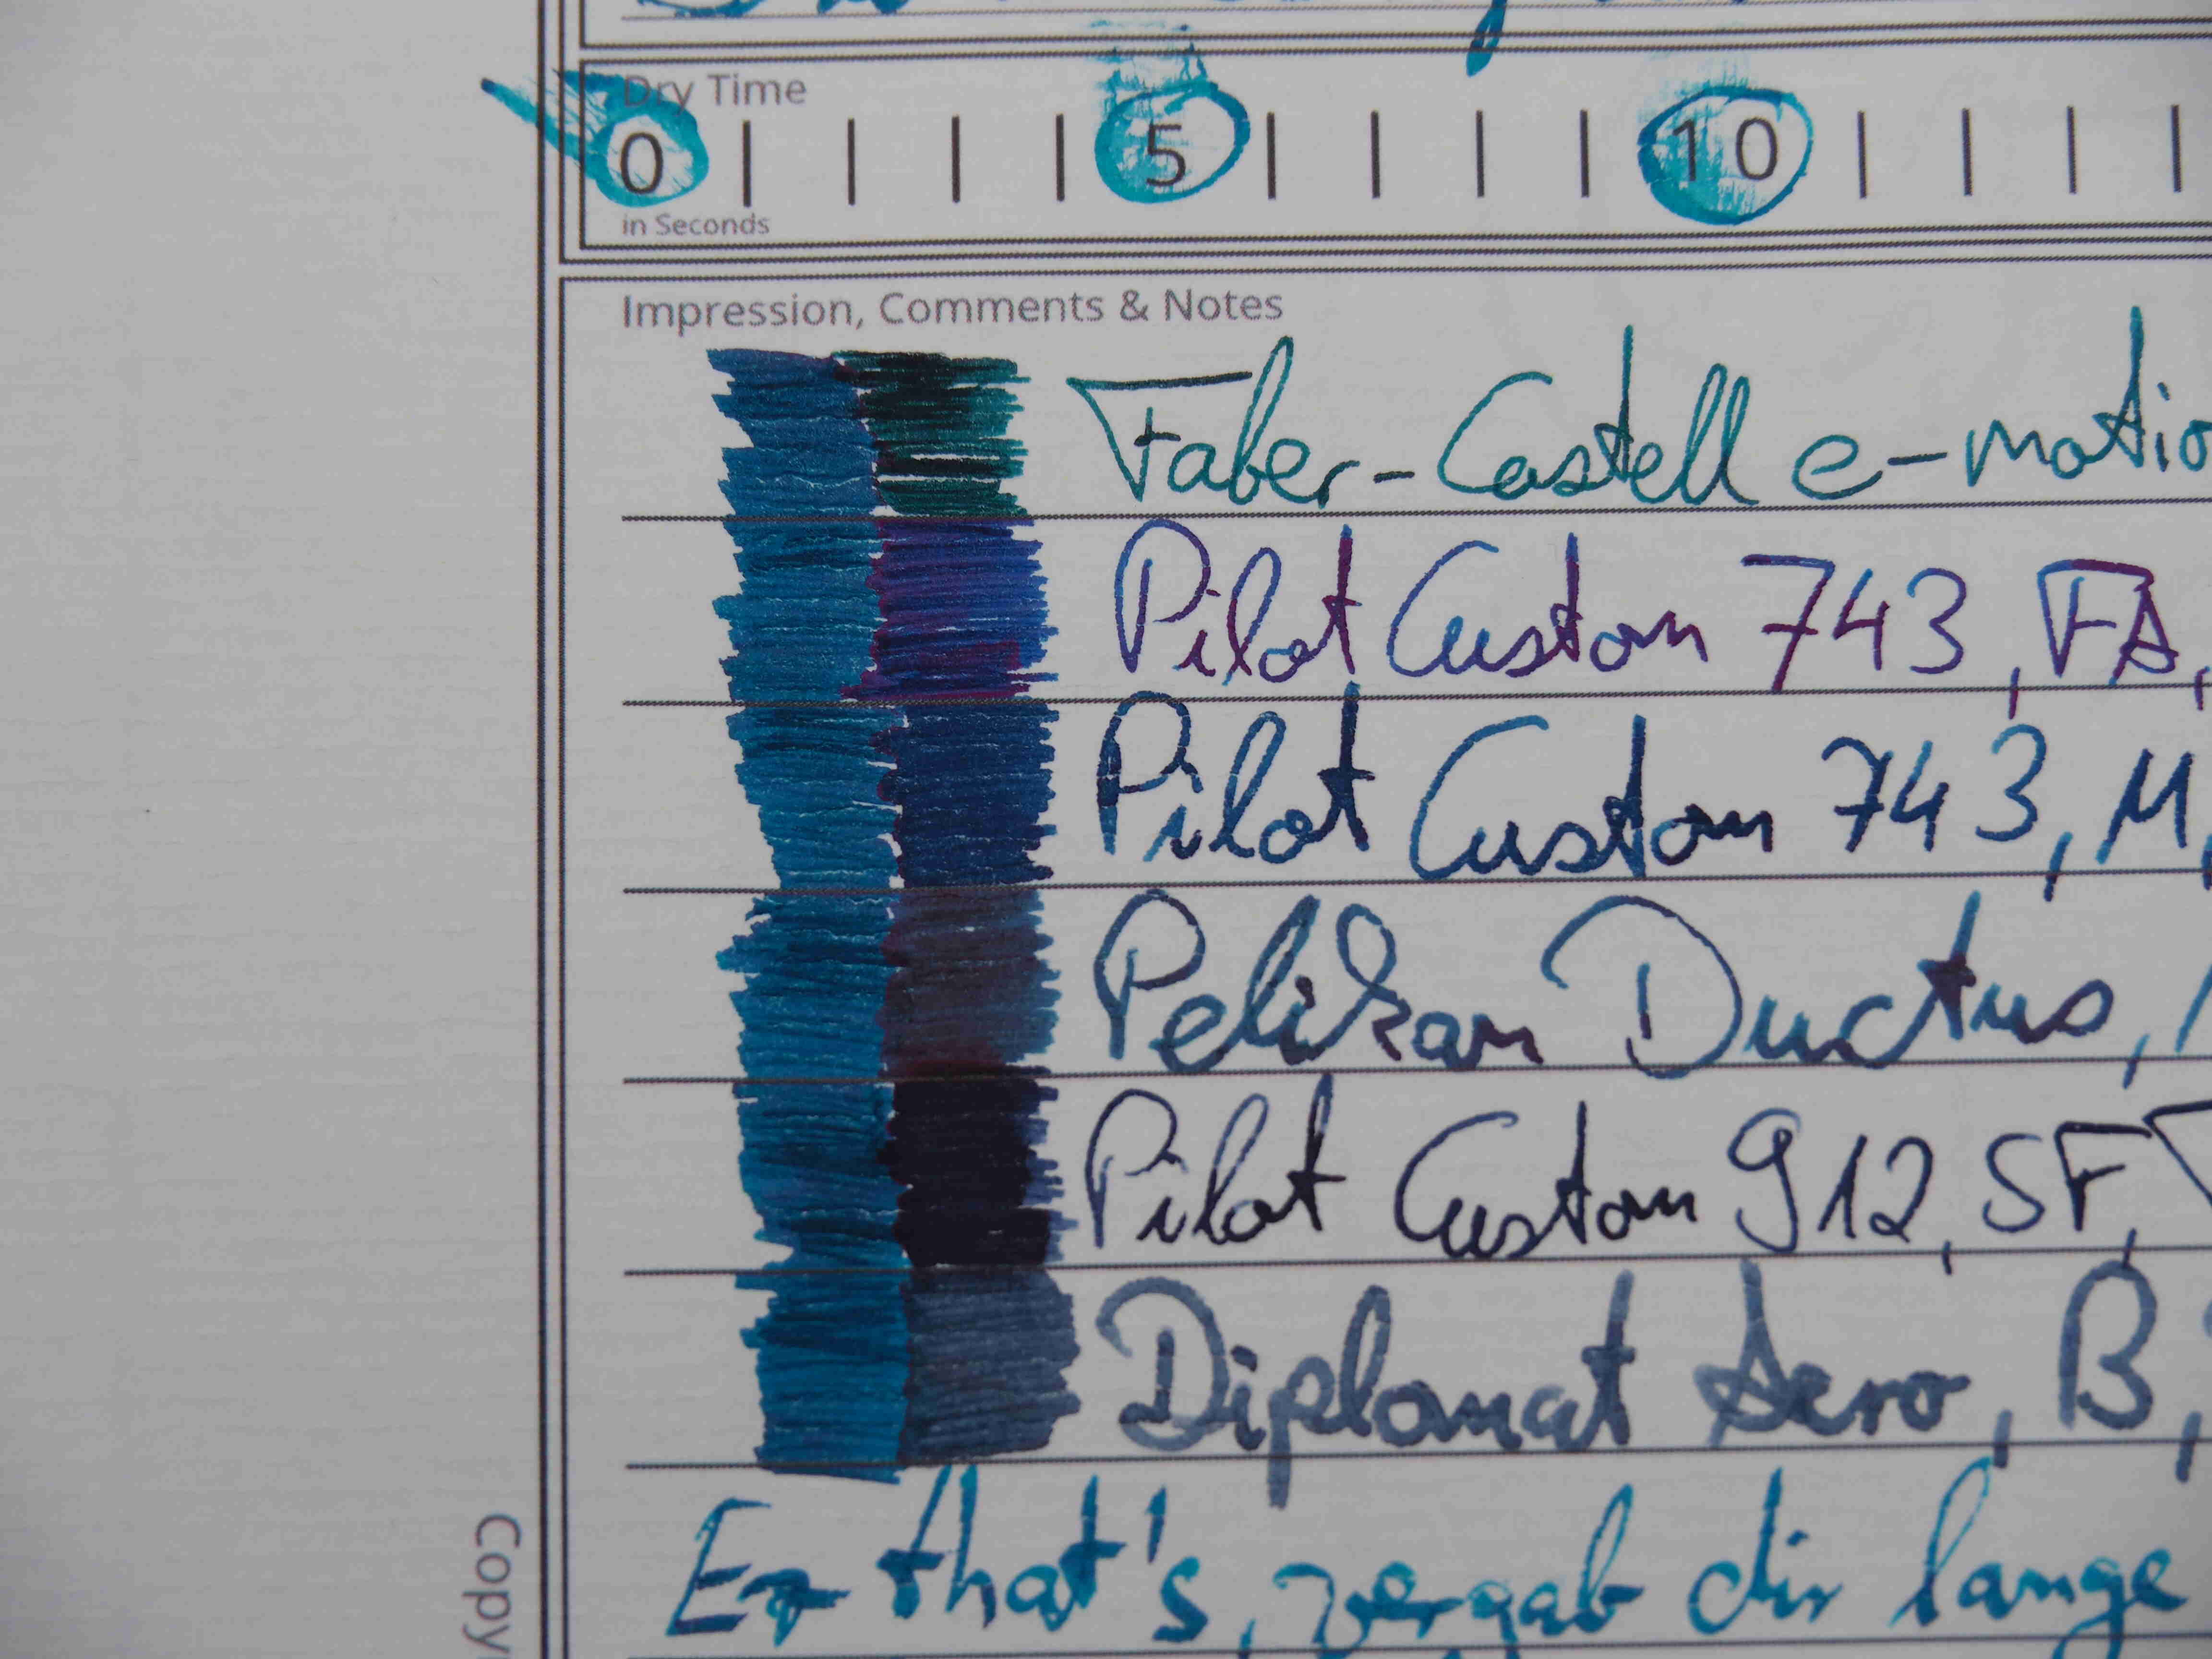 Dry Time
0 5 10
in Seconds
Impression, Comments & Notes
Faber-Castell e-motio
Pilot Custom 743, FA,
Pilot Custom 743, M,
Pelikan Ductus,
Pilot Custom 912, SF,
Diplomat Aero, B,
Er that's, vergab dir lange
Copy